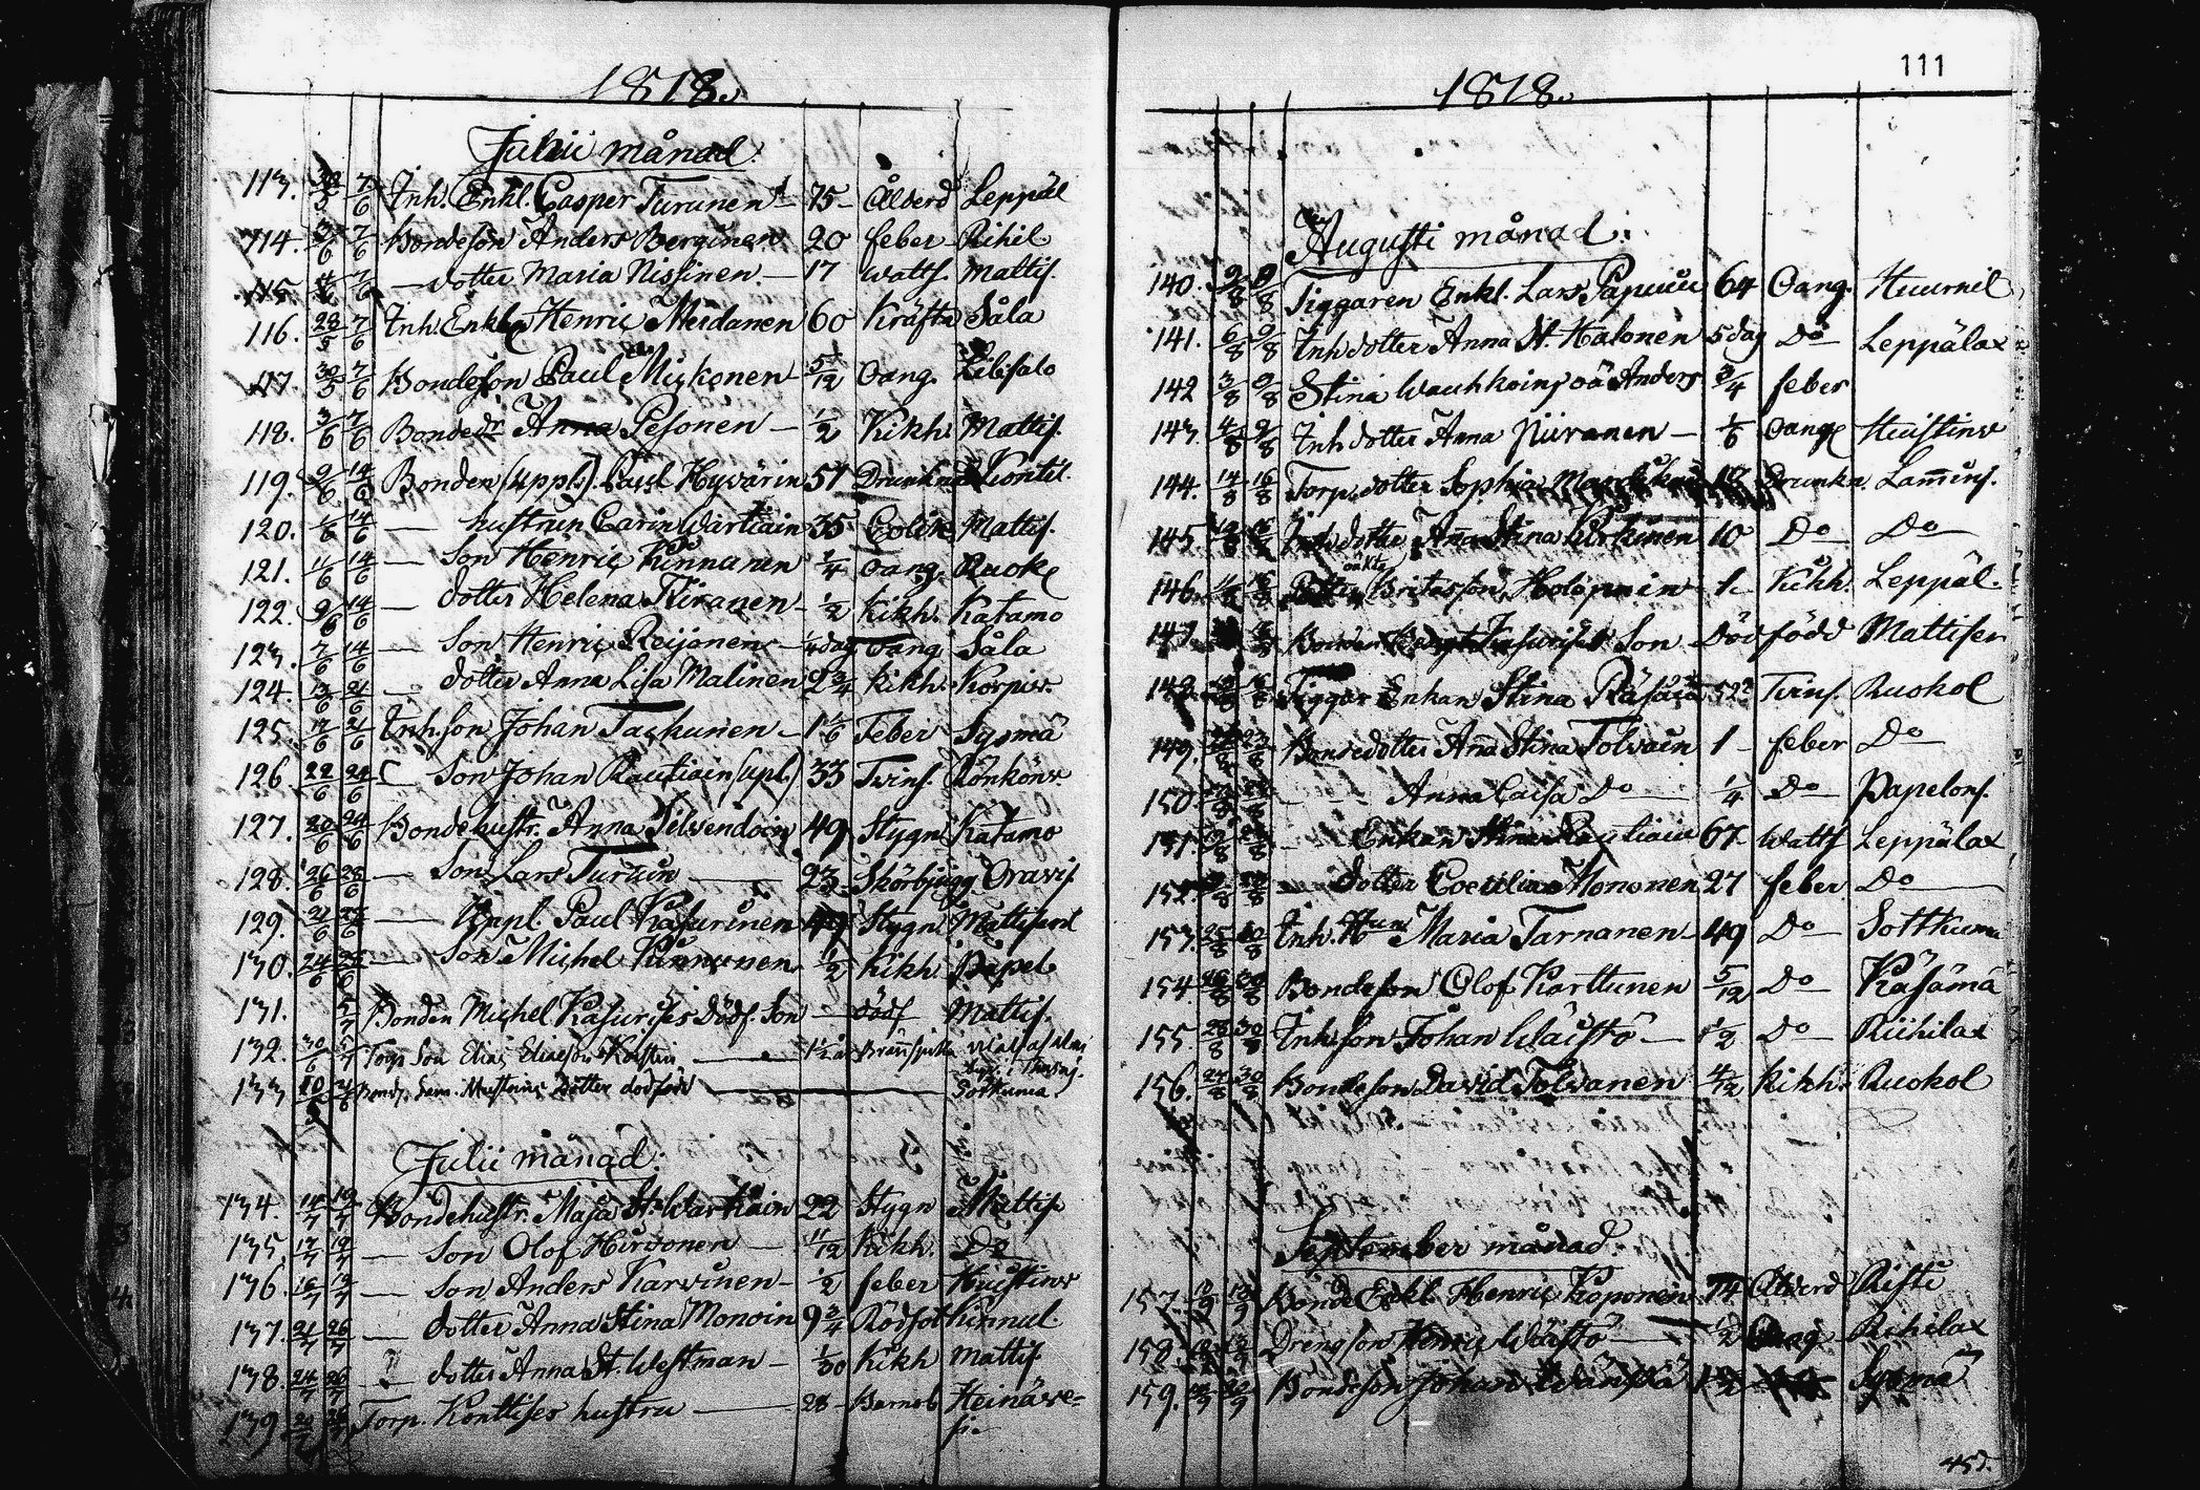 1818.
Julii månad.
113. 30/5 7/6 Inh. Enkl. Casper Turunen 75 Ålderd Leppäl
114. 3/6 7/6 Bondeson Anders Berginen 20 feber Rihil.
115. 7/6 — dotter Maria Nissinen. — 17 watts. Mattis.
116. 28/5 7/6 Inh. Enkl. Henric Meidanen 60 Kräfta Såla
117. 30/5 7/6 Bondeson Paul Miskonen 5/12 Oang. Libisalo
118. 3/6 7/6 Bonded:r Anna Pesonen — 1/2 Kikh. Mattis.
119. 9/6 14/6 Bonden (uppl.) Paul Hyvärin 51 Drunknad Kontil.
120. 14/6 — hustrun Carin Wartiain 35 Colik Mattis.
121. 11/6 14/6 — Son Henric Kinnunen 1/4 Oang. Ruok
122. 9/6 14/6 — dotter Helena Piiranen 1/2 Kikh. Katamo
123. 7/6 14/6 — Son Henric Reijonen dag Oang Såla
124. 13/6 21/6 — dotter Anna Lisa Malinen 2 3/4 Kikh. Korpiv.
125. 17/6 21/6 Inh. son Johan Taskunen 1 1/6 Feber Sysmä
126. 22/6 24/6 — Son Johan Rautiain (upl.) 33 Tvins. Rönkönv.
127. 20/6 24/6 Bondehustr. Anna Silvendoin 49 Stygn Katamo
128. 26/6 28/6 — Son Lars Turuin — 23 Skörbjugg Oravis.
129. 21/6 28/6 — Uppl. Paul Kasurinen 49 Stygn Mattiserd
130. 24/6 28/6 — Son Michel Kinnunen 1/2 Kikh. Papel
131. 5/7 Bonden Michel Kasurises Dödf. Son — dödf Mattis.
132. 30/6 5/7 Torp Son Elias Eliaeson — 1 1/2 år
133 Dotter dödfödd — Sotkuma.
Julii månad:
134. 14/7 19/7 Bondehustr. Maja St. Wartiain 22 Stygn Mattis
135. 17/7 19/7 — Son Olof Hirvonen — 11/12 Kikh. Do
136. 16/7 19/7 — Son Anders Karvinen — 1/2 feber Huistinv
137. 21/7 26/7 — dotter Anna Stina Monoin 9 3/4 Rödsot Kinnul.
138. 24/7 26/7 — dotter Anna St. Westman — 1/30 Kikh Mattis
139. 26/7 Torp. Konttises hustru — 28 — Barnsb Heinäve=
si.
1818.
111
Augusti månad:
140. 2/8 9/8 Tiggaren Enkl. Lars Papuin 64 Oang. Huurnil
141. 6/8 9/8 Inh dotter Anna St. Halonen 5 dag Do Leppälax
142 3/8 9/8 Stina Wauhkoins oä Anders 3/4 feber
143. 4/8 9/8 Inh dotter Anna Piiranen — 1/6 Oang Huistinv
144. 14/8 16/8 Torp. dotter Sophia 10 Drunkn. Lamins.
145. Inh dotter Anna Stina Kirkinen 10 Do Do
146. oäkta Britas son Holopain 1 — Kikh. Leppäl.
147. Bonden Kasurises Son — Dödfödd Mattiser
148. Tiggar Enkan Stina Räsäin 52 Tvins. Ruokol
149. Bondedotter Ana Stina Tolvain 1 — feber Do
150. — Anna Caisa Do — 1/4 Do Papelons.
151. — Enkan Stina Rautiain 67 Watts Leppälax
152. — dotter Coecilia Mononen 27 feber Do
153. 25/8 30/8 Inh. Hun Maria Tarnanen 49 Do Sottkuma
154 26/8 30/8 Bondeson Olof Karttunen 5/12 Do Käsämä
155. 28/8 30/8 Inh. son Johan Wäistö — 1/2 Do Riihilax
156. 27/8 30/8 Bondeson David Tolvanen 4/12 Kikh. Ruokol
September månad.
157. 13/9 Bonde Enkl. Henric Koponen 74 Ålderd Risti
158. 13/9 Drengson Henric Wäistö — 1/2 Oang Rihilax
159. 20/9 Bondeson Johan Sysmä